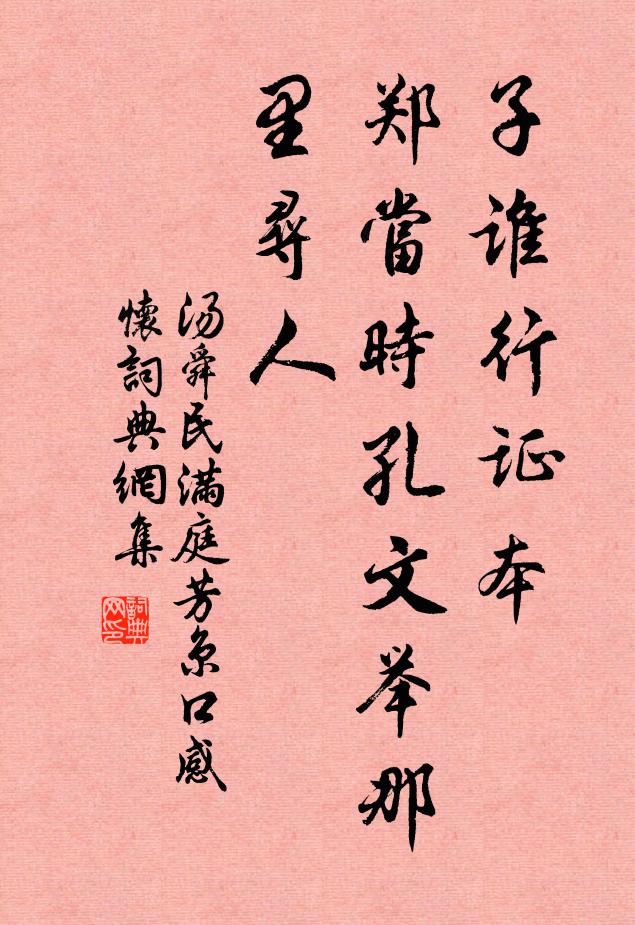 子谁行证本
郑當時孔文举那
里尋人
汤舜民满庭芳京口感
懷詞典網集
詞典
网印